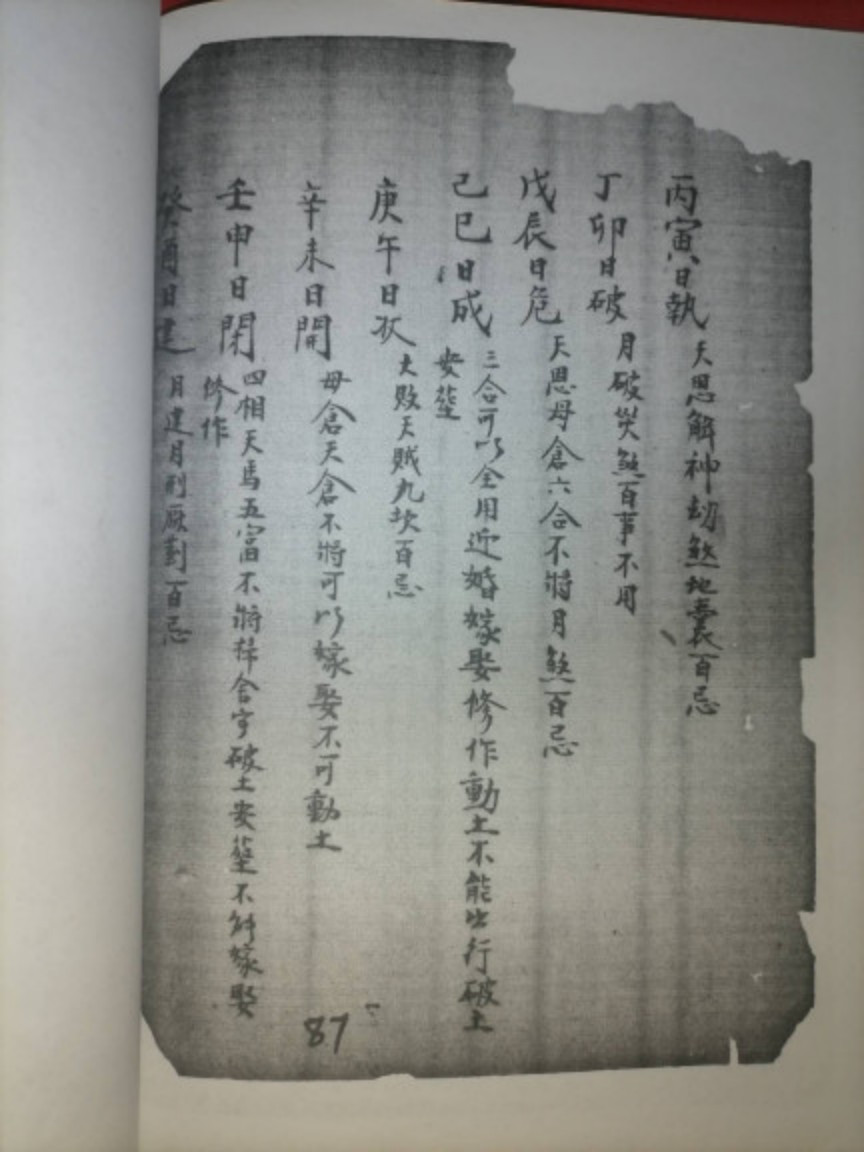 丙寅日執 天恩解神劫煞地囊百忌
丁卯日破 月破災煞百事不用
戊辰日危 天恩母倉六合不將月煞百忌
己巳日成 三合可以全用近婚嫁娶修作動土不能出行破土
安葬
庚午日收 大敗天賊九坎百忌
辛未日開 母倉天倉不將可以嫁娶不可動土
壬申日閉 四相天馬五富不將 舍宇破土安葬不 嫁娶
修作
癸酉日建 月建月刑厭對百忌
87